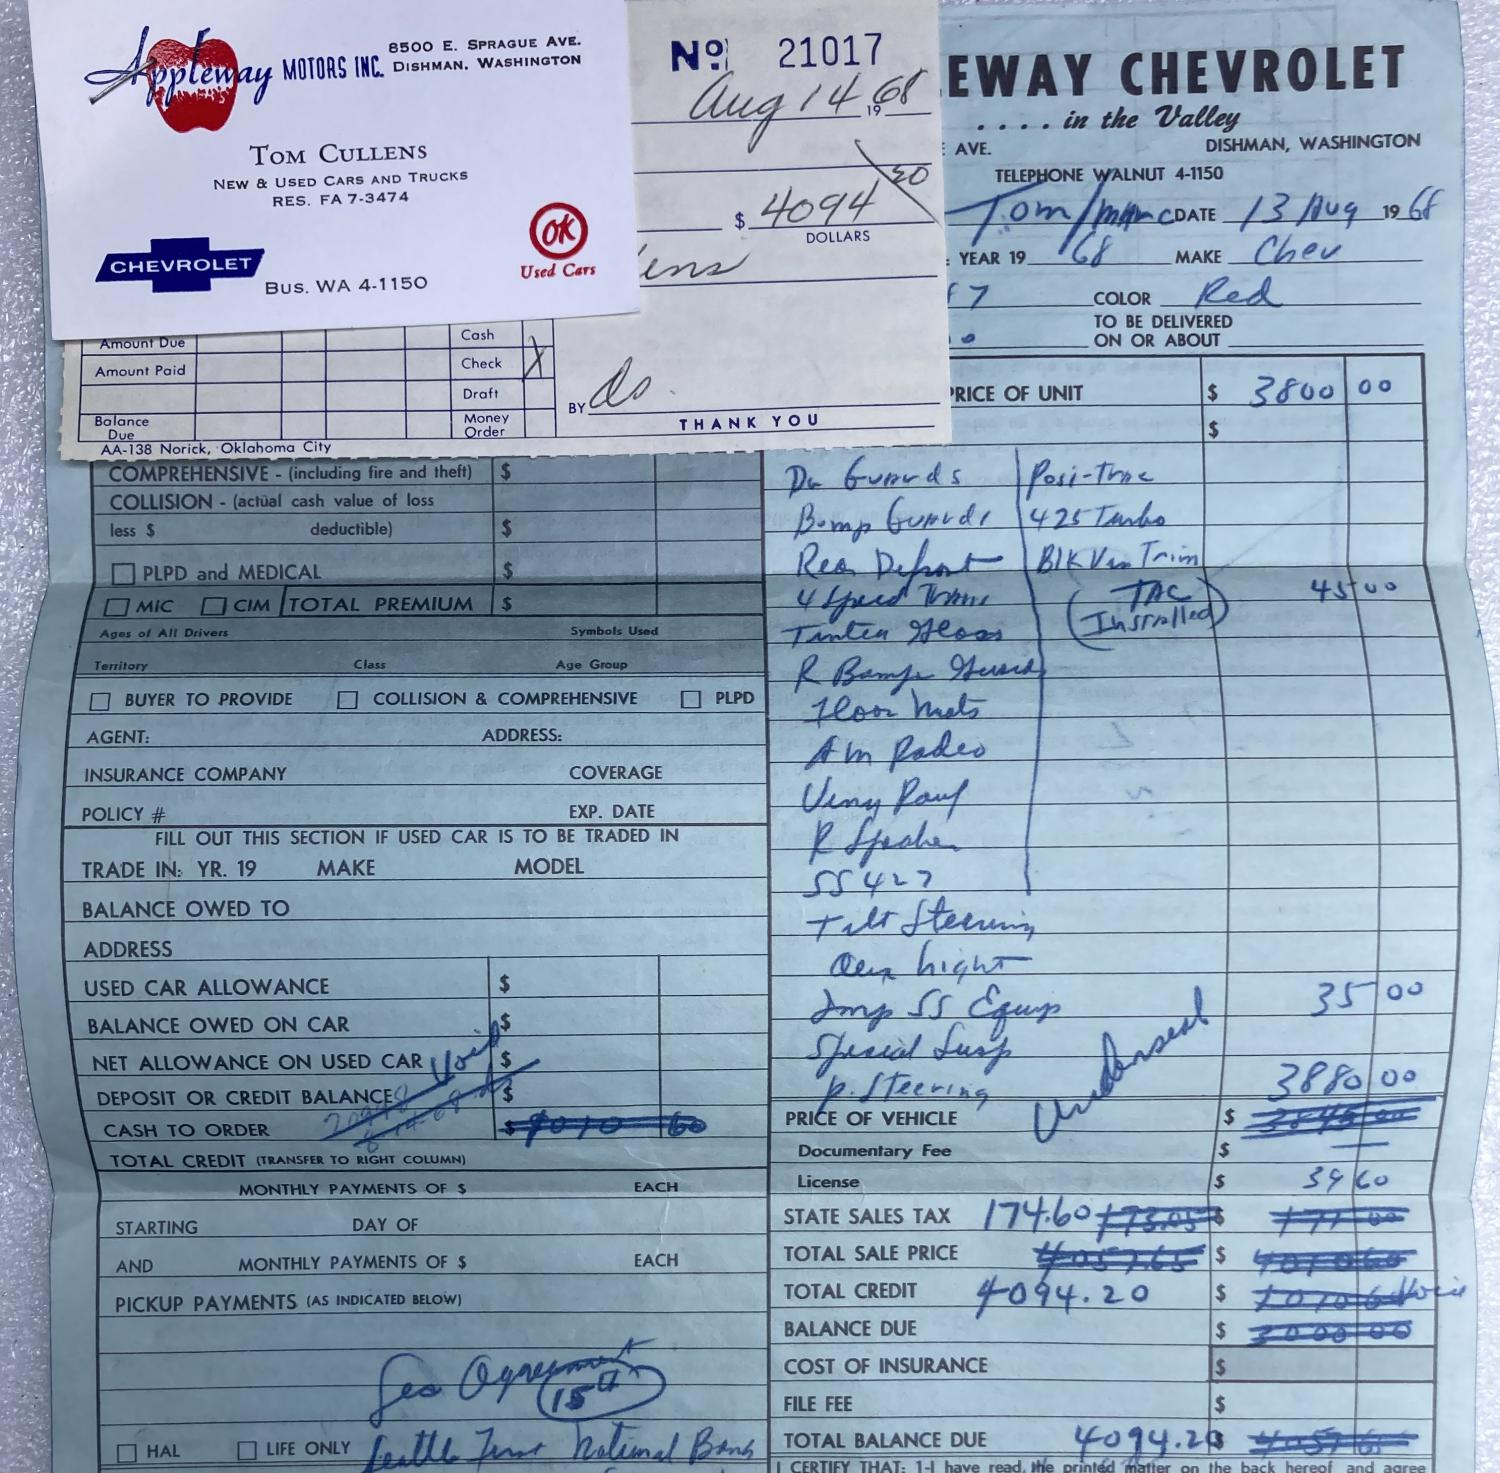 Appleway MOTORS INC.
8500 E. SPRAGUE AVE.
DISHMAN, WASHINGTON
TOM CULLENS
NEW & USED CARS AND TRUCKS
RES. FA 7-3474
OK
Used Cars
CHEVROLET
BUS. WA 4-1150
No 21017
Aug 14 1968
$ 4094 20
DOLLARS
ens
Amount Due
Cash
Amount Paid
Check X
Draft
Balance Due
Money Order
BY
THANK YOU
AA-138 Norick, Oklahoma City
EWAY CHEVROLET
.... in the Valley
AVE. DISHMAN, WASHINGTON
TELEPHONE WALNUT 4-1150
Tom DATE 13 Aug 1968
YEAR 19 68 MAKE Chev
7 COLOR Red
TO BE DELIVERED
ON OR ABOUT
PRICE OF UNIT $ 3800 00
$
COMPREHENSIVE - (including fire and theft) $
COLLISION - (actual cash value of loss
less $ deductible) $
PLPD and MEDICAL $
MIC CIM TOTAL PREMIUM $
Ages of All Drivers Symbols Used
Territory Class Age Group
BUYER TO PROVIDE COLLISION & COMPREHENSIVE PLPD
AGENT: ADDRESS:
INSURANCE COMPANY COVERAGE
POLICY # EXP. DATE
FILL OUT THIS SECTION IF USED CAR IS TO BE TRADED IN
TRADE IN: YR. 19 MAKE MODEL
BALANCE OWED TO
ADDRESS
USED CAR ALLOWANCE $
BALANCE OWED ON CAR $
NET ALLOWANCE ON USED CAR Void $
DEPOSIT OR CREDIT BALANCE $
CASH TO ORDER $ 1010 60
TOTAL CREDIT (TRANSFER TO RIGHT COLUMN)
MONTHLY PAYMENTS OF $ EACH
STARTING DAY OF
AND MONTHLY PAYMENTS OF $ EACH
PICKUP PAYMENTS (AS INDICATED BELOW)
Agreement
15th
HAL LIFE ONLY Seattle First National Bank
Do Guards Posi-Trac
Bump Guards 425 Turbo
Rea Defrost Blk Vin Trim
4 Speed Trans (TAC Installed) 45 00
Tinted Glass
R Bump Guard
Floor Mats
Am Radio
Viny Rouf
R Speaker
SS 427
Tilt Steering
Light
Imp SS Equip 35 00
Special Susp
P. Steering Undorseal 3880 00
PRICE OF VEHICLE $ 3845 00
Documentary Fee $ —
License $ 39 60
STATE SALES TAX 174.60 173.05 $
TOTAL SALE PRICE 4057.65 $ 4010 60
TOTAL CREDIT 4094.20 $ 1010 60 Void
BALANCE DUE $ 3000 00
COST OF INSURANCE $
FILE FEE $
TOTAL BALANCE DUE 4094.20 $ 4057 65
I CERTIFY THAT: 1-I have read the printed matter on the back hereof and agree